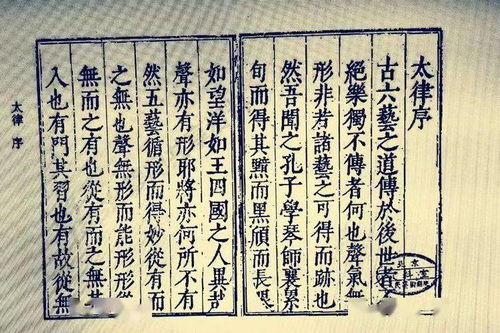 太律序
古六藝之道傳於後世者
絕樂獨不傳者何也聲氣無
形非若諸藝之可得而跡也
然吾聞之孔子學琴師襄
旬而得其黯而黑頎而長眼
如望洋如王四國之人異哉
聲亦有形耶將亦何所不有
然五藝循形而得妙從有而
之無也聲無形而能形形從
無而之有也從有而之無其
入也有門其習也有故從無
太律 序